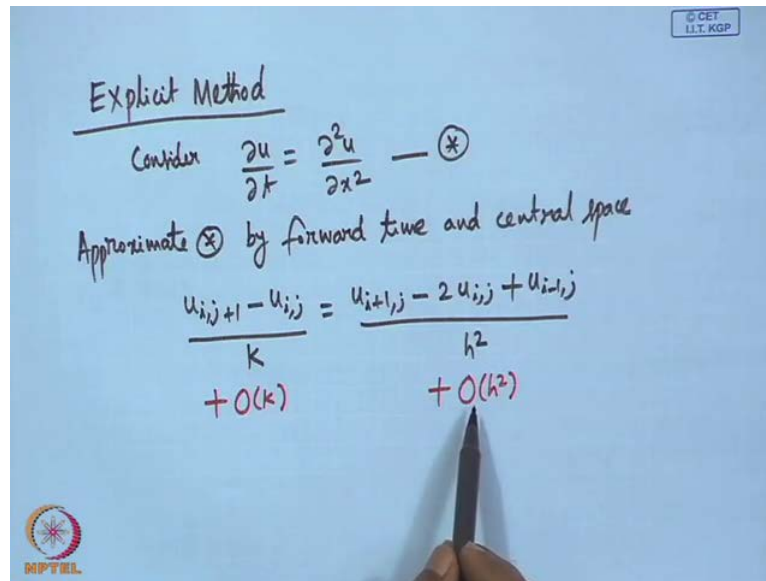 © CET
I.I.T. KGP
Explicit Method
Consider ∂u/∂t = ∂²u/∂x² — ⊛
Approximate ⊛ by forward time and central space
(u_{i,j+1} - u_{i,j})/k = (u_{i+1,j} - 2u_{i,j} + u_{i-1,j})/h²
+ O(k) + O(h²)
NPTEL